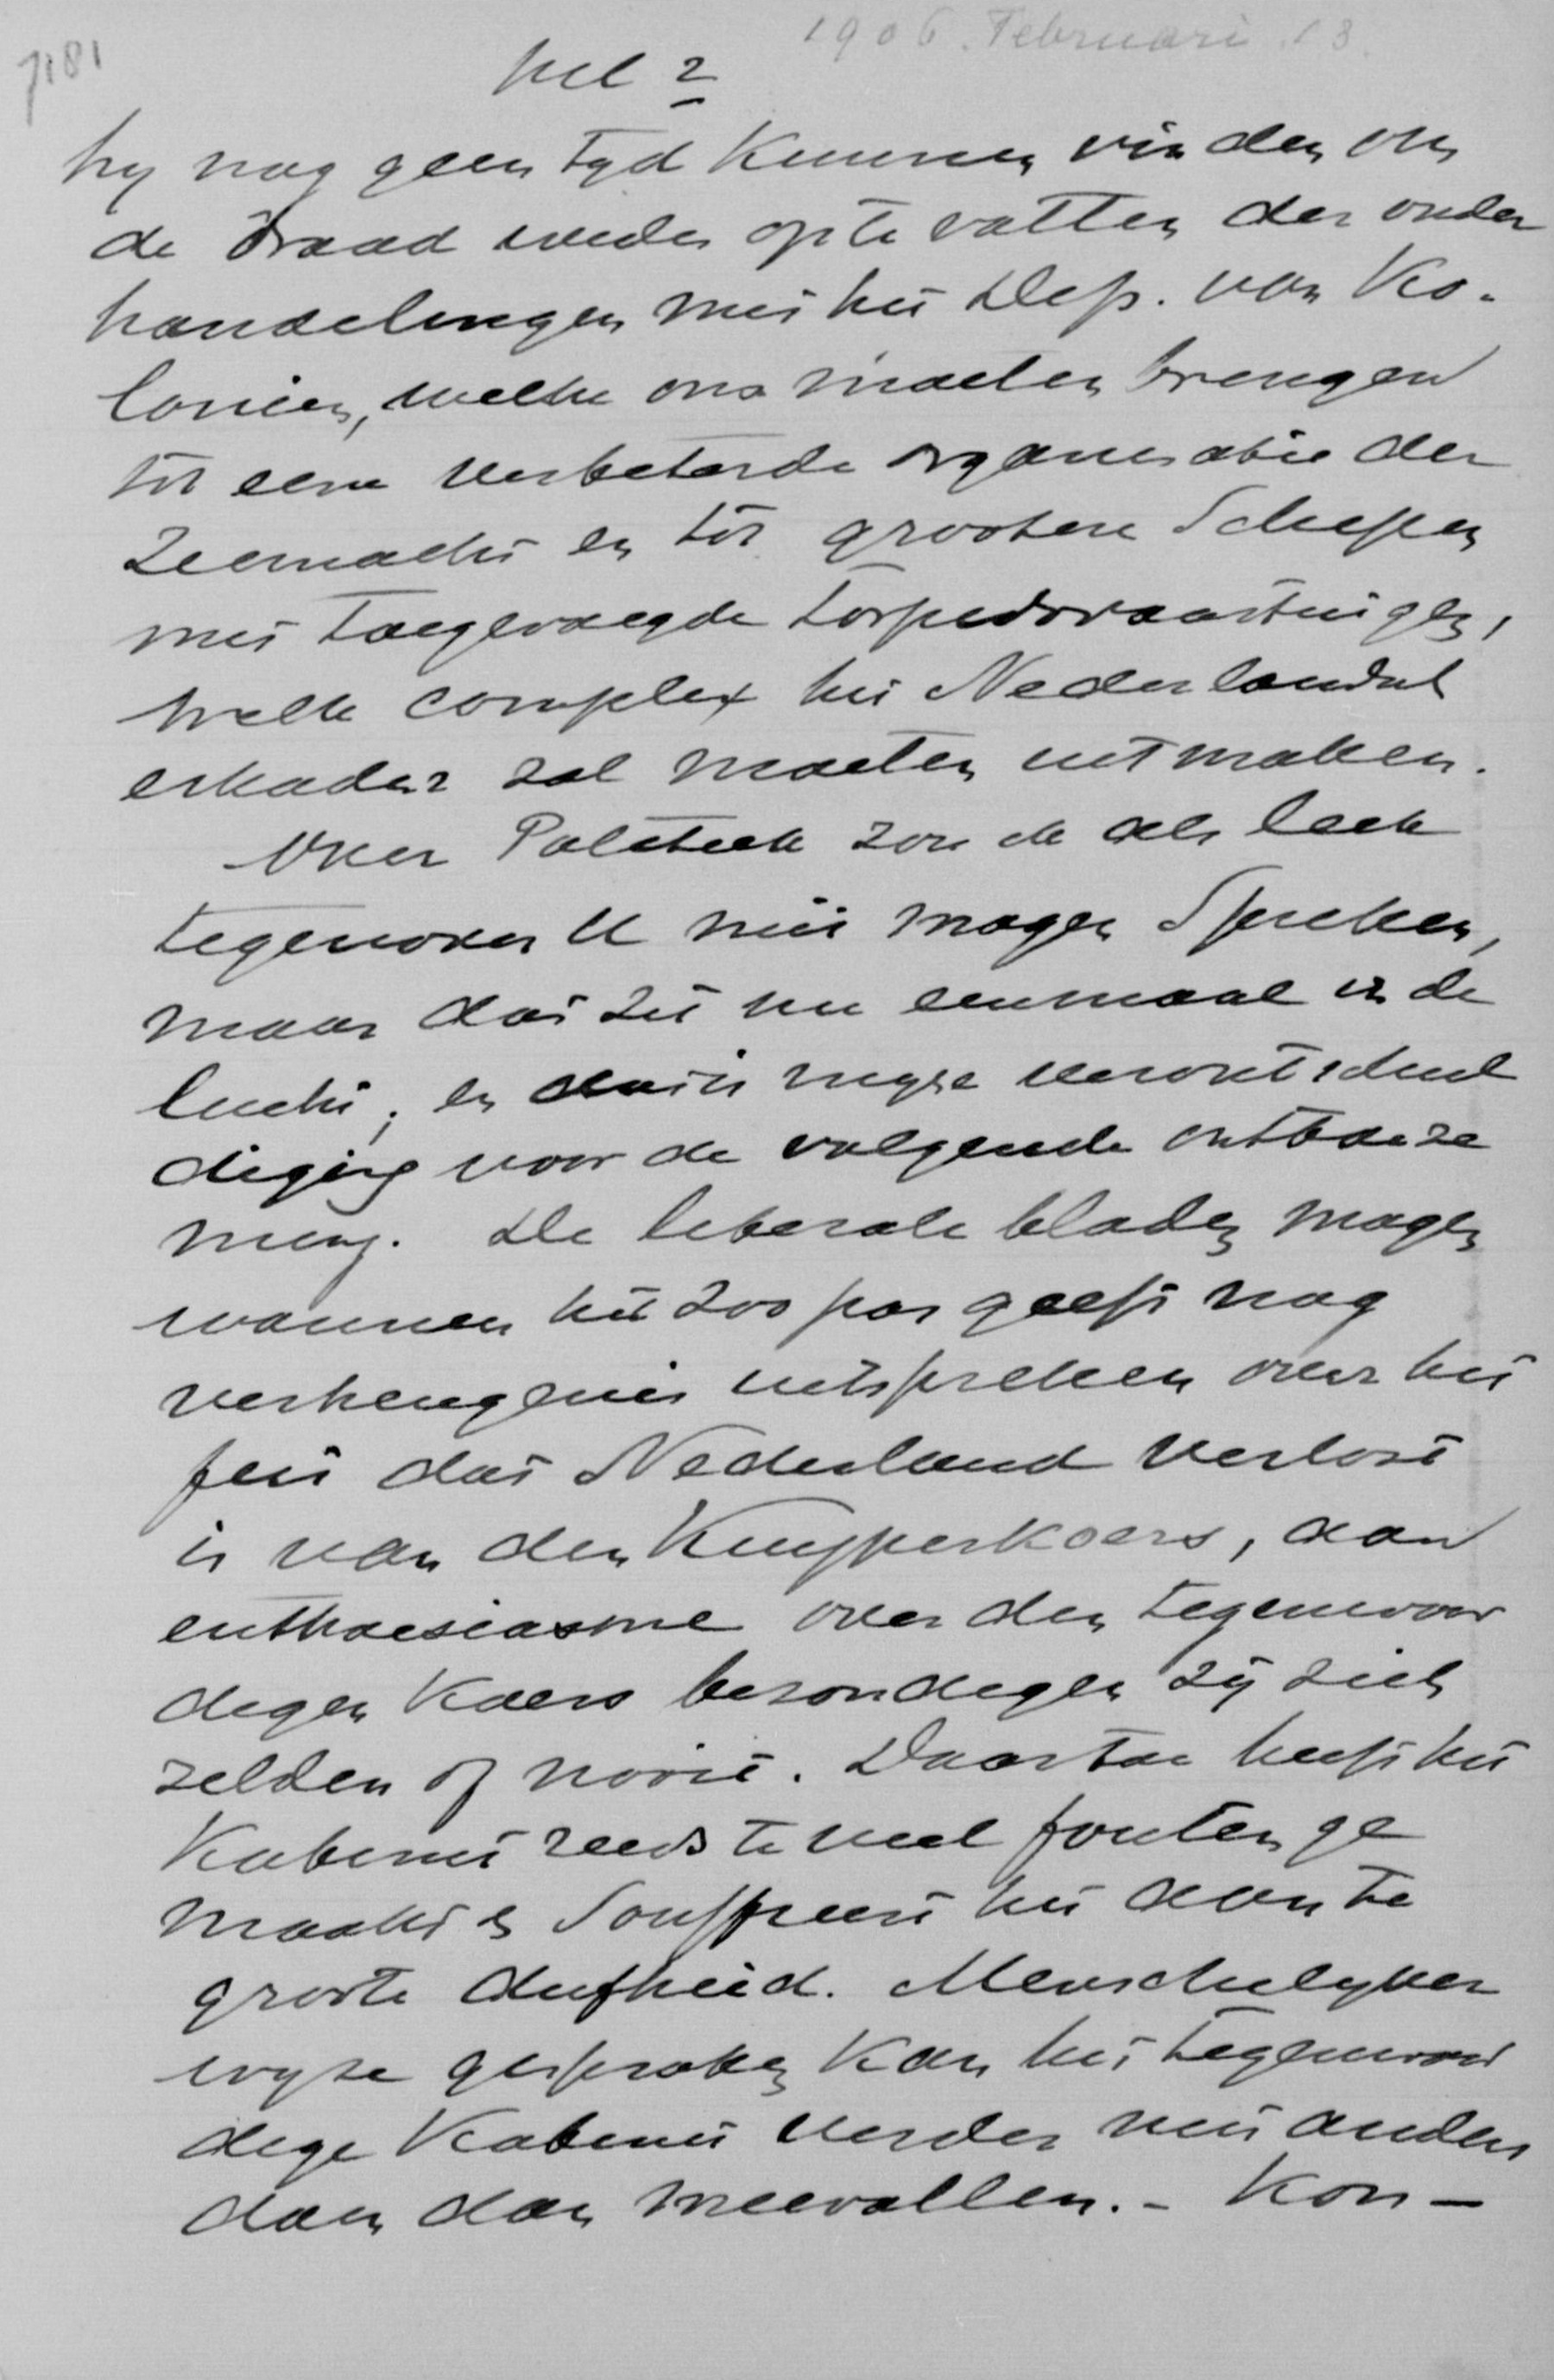 1906. Februari 13.
7181
vel 2
hy nog geen tyd kunnen vinden om
de draad weder op te vatten der onder
handelingen met het Dep. van Ko-
lonien, welke ons moeten brengen
tot eene verbeterde organisatie der
Zeemacht en tot grootere Schepen
met toegevoegde torpedovaartuigen,
welk complex het Nederlandsch
eskader zal moeten uitmaken.
Over Politiek zou ik als leek
tegenover U niet mogen Spreken,
maar dat zit nu eenmaal in de
lucht; en dat is myne verontschul
diging voor de volgende ontboeze
ming. De liberale bladen mogen
wanneer het zoo pas geeft nog
verheugenis uitspreken over het
feit dat Nederland verlost
is van den Kuyperkoers, aan
enthoesiasme over den tegenwoor
digen koers bezondigen zij zich
zelden of nooit. Daartoe heeft het
Kabinet reeds te veel fouten ge
maakt en Souffreert het aan te
groote dufheid. Menschelyker
wyze gesproken kan het tegenwoor
dige Kabinet verder niet anders
doen dan meevallen. - Kon -